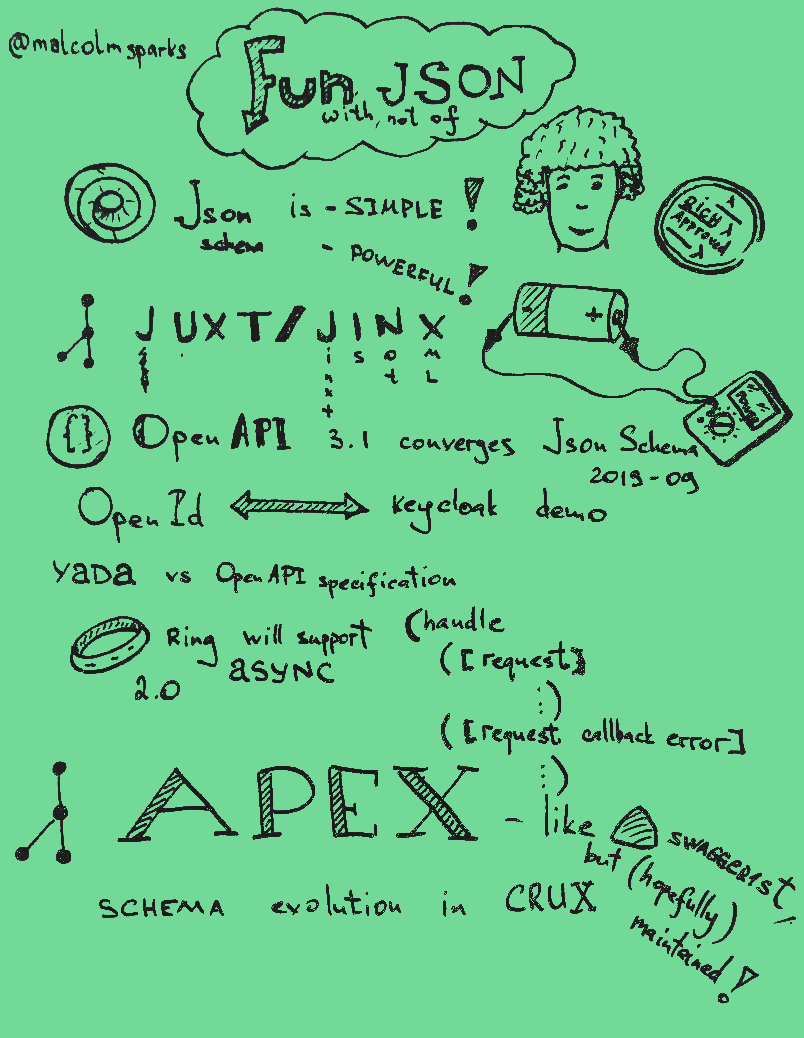 @malcolmsparks
Fun JSON
with, not of
Json is - SIMPLE !
schema - POWERFUL !
RICH
Approved
λ
λ
λ
JUXT/JINX
i s o m
n t L
x
t
- +
{} Open API 3.1 converges Json Schema
2019-09
OpenId keycloak demo
yada vs OpenAPI specification
Ring will support (handle
2.0 async ([request]
...)
([request callback error]
...)
APEX - like swaggerist,
but (hopefully)
maintained!
SCHEMA evolution in CRUX